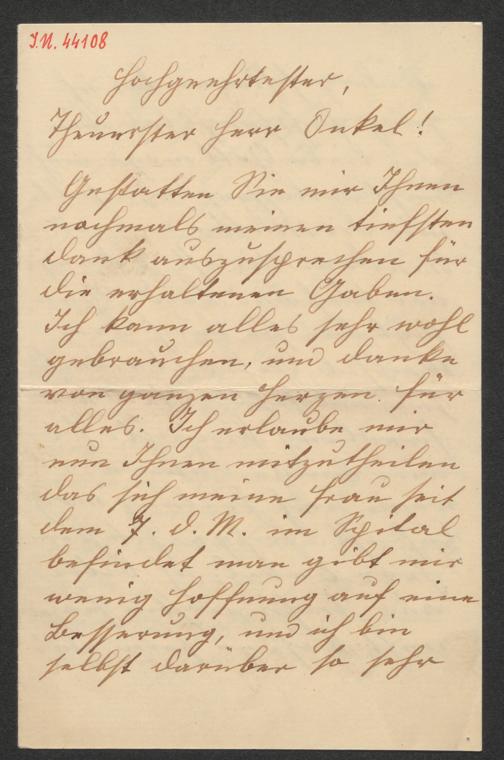 I.N. 44108
Hochgeehrtester,
Theuerster Herr Onkel!
Gestatten Sie mir Ihnen
nochmals meinen tiefsten
dank auszusprechen für
die erhaltenen Gaben.
Ich kann alles sehr wohl
gebrauchen, und danke
von ganzen Herzen für
alles. Ich erlaube mir
nun Ihnen mitzutheilen
das sich meine Frau seit
dem 7. d. M. im Spital
befindet man gibt mir
wenig Hoffnung auf eine
Besserung, und ich bin
selbst darüber so sehr